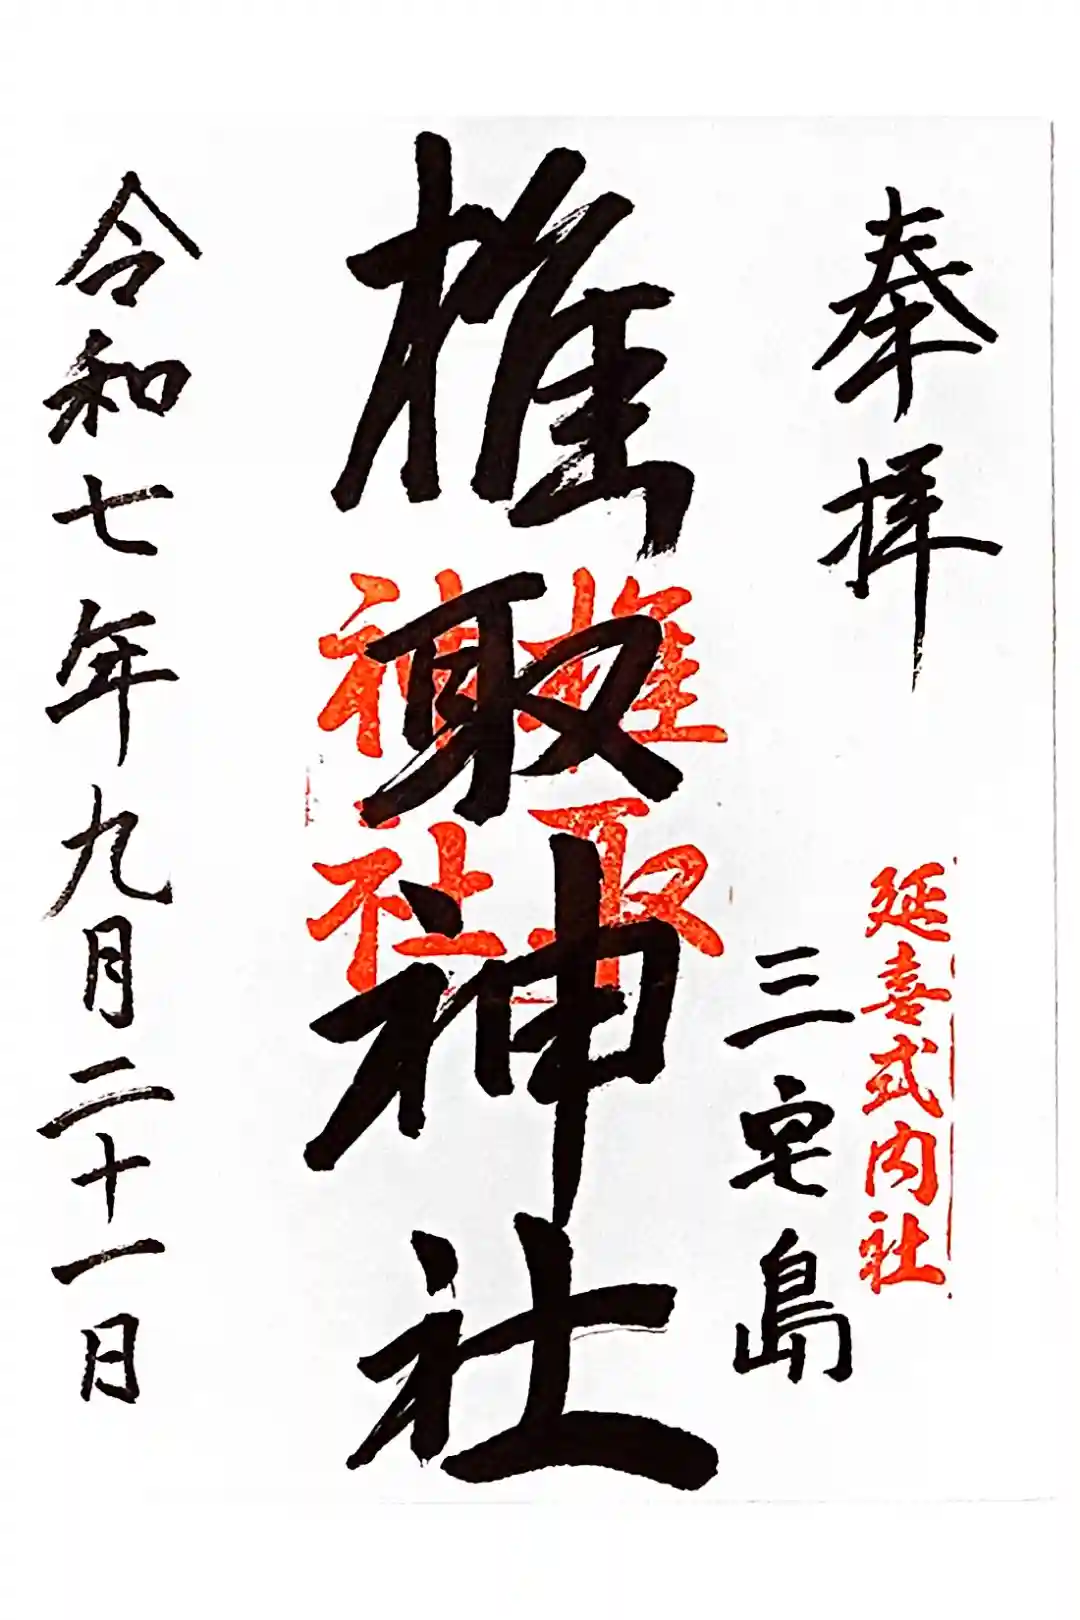 奉拝
延喜式内社
三宅島
椎取神社
椎取
神社
令和七年九月二十一日